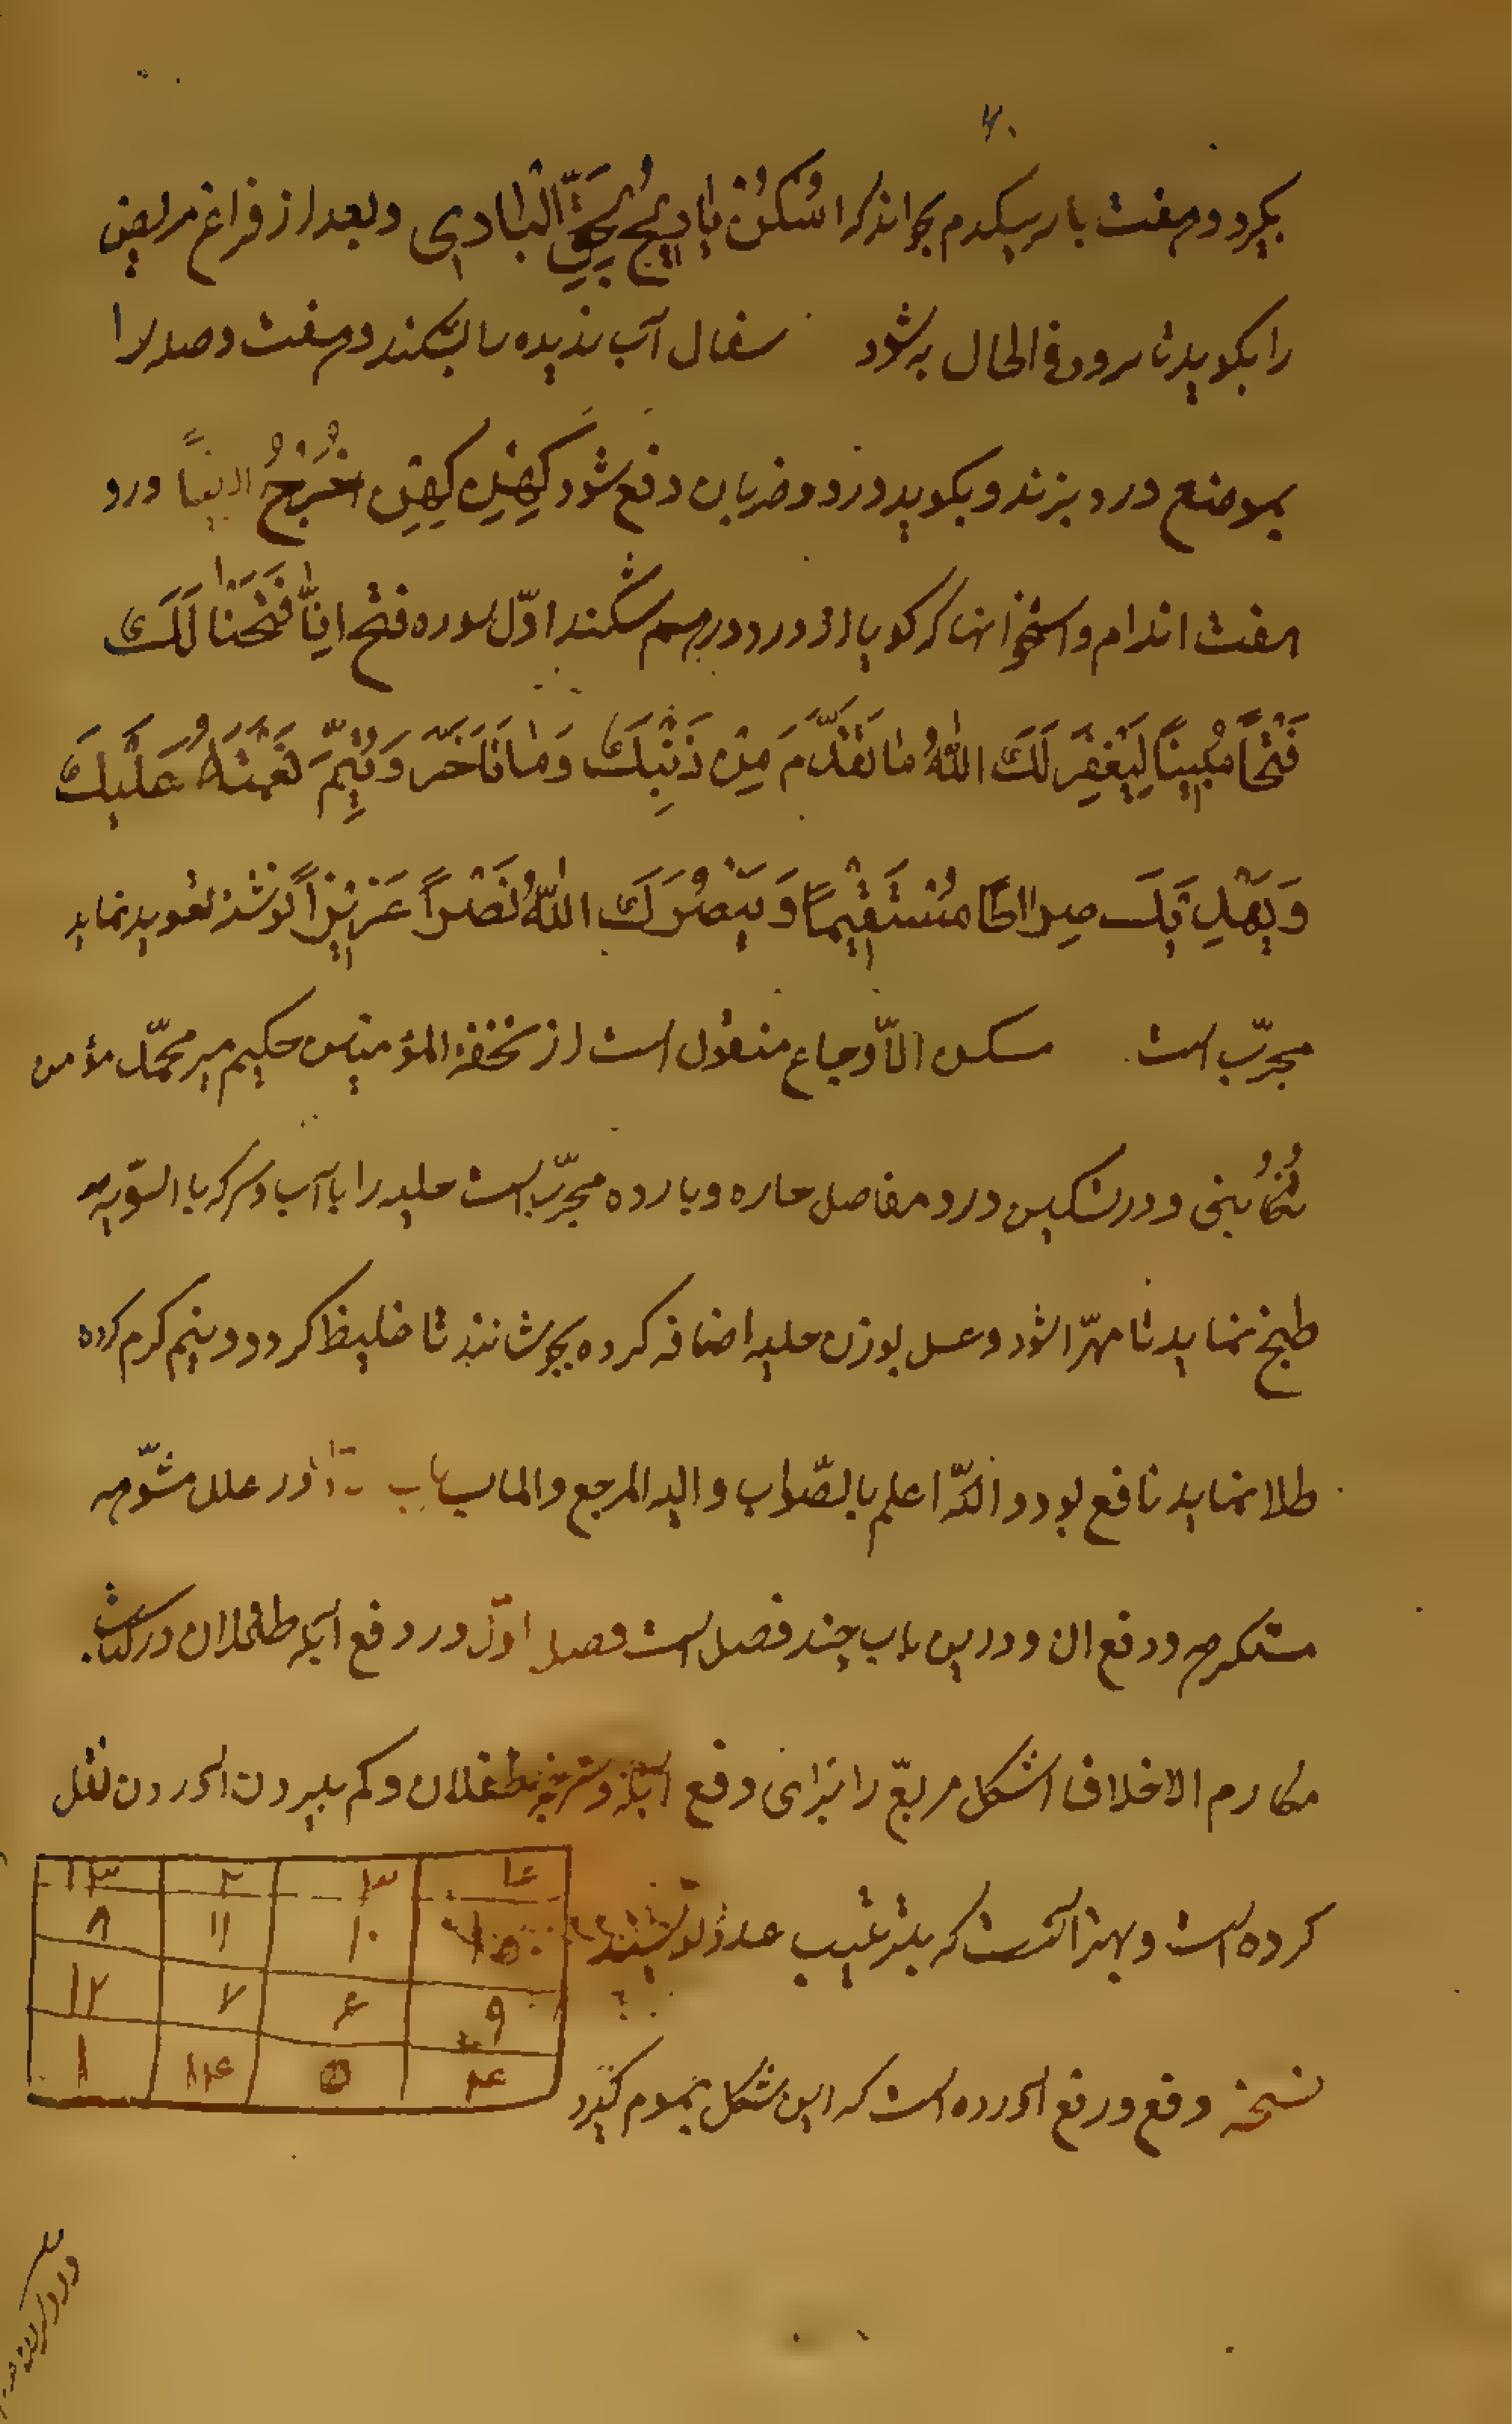 ۷۰
بکیرد و هفت بار بیکدم بخواند که اُسْکُنْ یا ریحُ بِحَقِّ الْبادی و بعد از فراغ مریض
را بکوید تا برود فی الحال به شود سفال آب ندیده را بشکند و هفت وصله را
بموضع درد بزند و بکوید درد و ضربان دفع شود کهین کهین اخرج ایضاً درد
هفت اندام و استخوانها که کویا از درد درهم شکند اوّل سوره فتح اِنّا فَتَحْنا لَکَ
فَتْحاً مُبیناً لِیَغْفِرَ لَکَ اللّهُ ما تَقَدَّمَ مِنْ ذَنْبِکَ وَما تَاَخَّرَ وَیُتِمَّ نِعْمَتَهُ عَلَیْکَ
وَیَهْدِیَکَ صِراطاً مُسْتَقیماً وَیَنْصُرَکَ اللّهُ نَصْراً عَزیزاً نوشته تعوید نماید
مجرّب است مسکن الاَوجاع منقول است از تحفة المؤمنین حکیم میر محمّد مؤمن
تنکابنی و در تسکین درد مفاصل حاره و بارده مجرّب است حلبه را با آب و سرکه بالسّویه
طبخ نماید تا مهرّا شود و عسل بوزن حلبه اضافه کرده بجوشانند تا غلیظ کردد و نیم کرم کرده
طلا نماید نافع بود و اللّه اعلم بالصّواب و الیه المرجع و الماب باب در علل مشوّهه
مستکرهه و دفع ان و در این باب چند فصل است فصل اوّل در دفع ابله طفلان در کتاب
مکارم الاخلاق اشکل مربّع را برای دفع ابله و سرخچه طفلان و کم بیرون اوردن نقل
کرده است و بهتر انست که بترتیب عدد نویسند
نسخه دفع و رفع اورده است که این شکل بموم کیرد
۱۶ ۳ ۲ ۱۳
۱۵ ۱۰ ۱۱ ۸
۹ ۶ ۷ ۱۲
۴ ۵ ۱۴ ۱